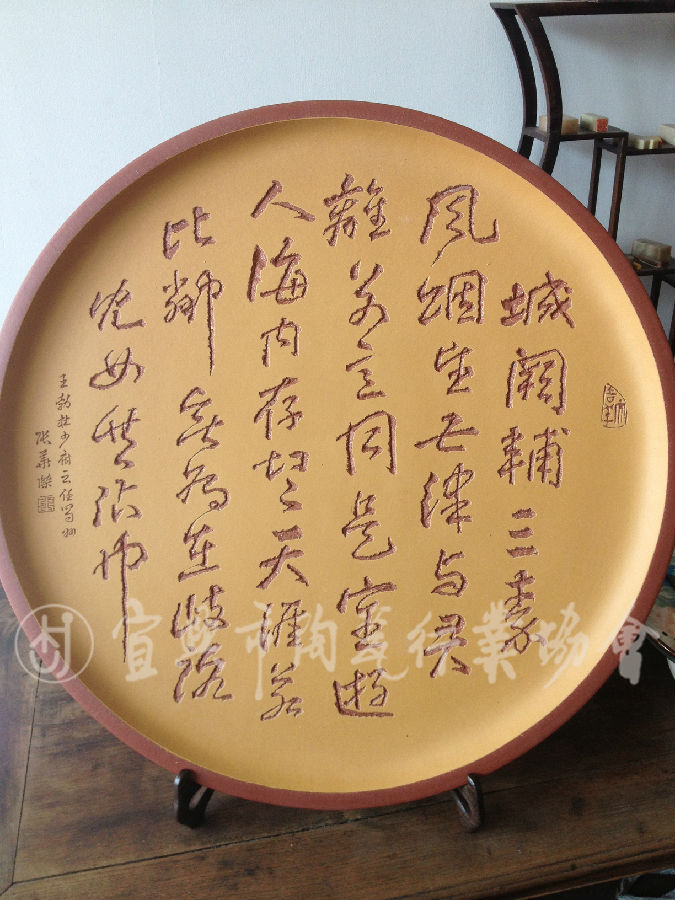 城闕輔三秦
風烟望五津与君
離别意同是宦遊
人海内存知己天涯若
比鄰無為在歧路
児女共沾巾
王勃杜少府之任蜀州
宜興市陶瓷行業協會